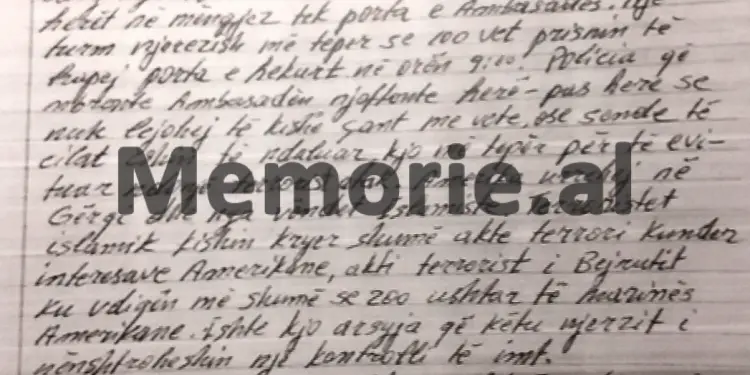 herët në mëngjez tek porta e Ambasadës. Një
turm njerëzish më teper se 100 vet prisnin të
hapej porta e hekurt në orën 9:00! Policia që
ruante Ambasadën njoftonte herë-pas herë se
nuk lejohej të kishe çant me vete, ose sende të
cilat ishin të ndaluar kjo më tepër për të evi-
tuar ndonjë terrorist atak. Amerika urrehej në
Gërqi dhe nga vendet Islamiste. Terroristet
islamik kishin kryer shumë akte terrori kunder
interesave Amerikane, akti terrorist i Bejrutit
ku vdiqën më shumë se 200 ushtar të marinës
Amerikane. Ishte kjo arsyja që këtu njerzit i
nënshtroheshin një kontrolli të imt.
Memorie.al